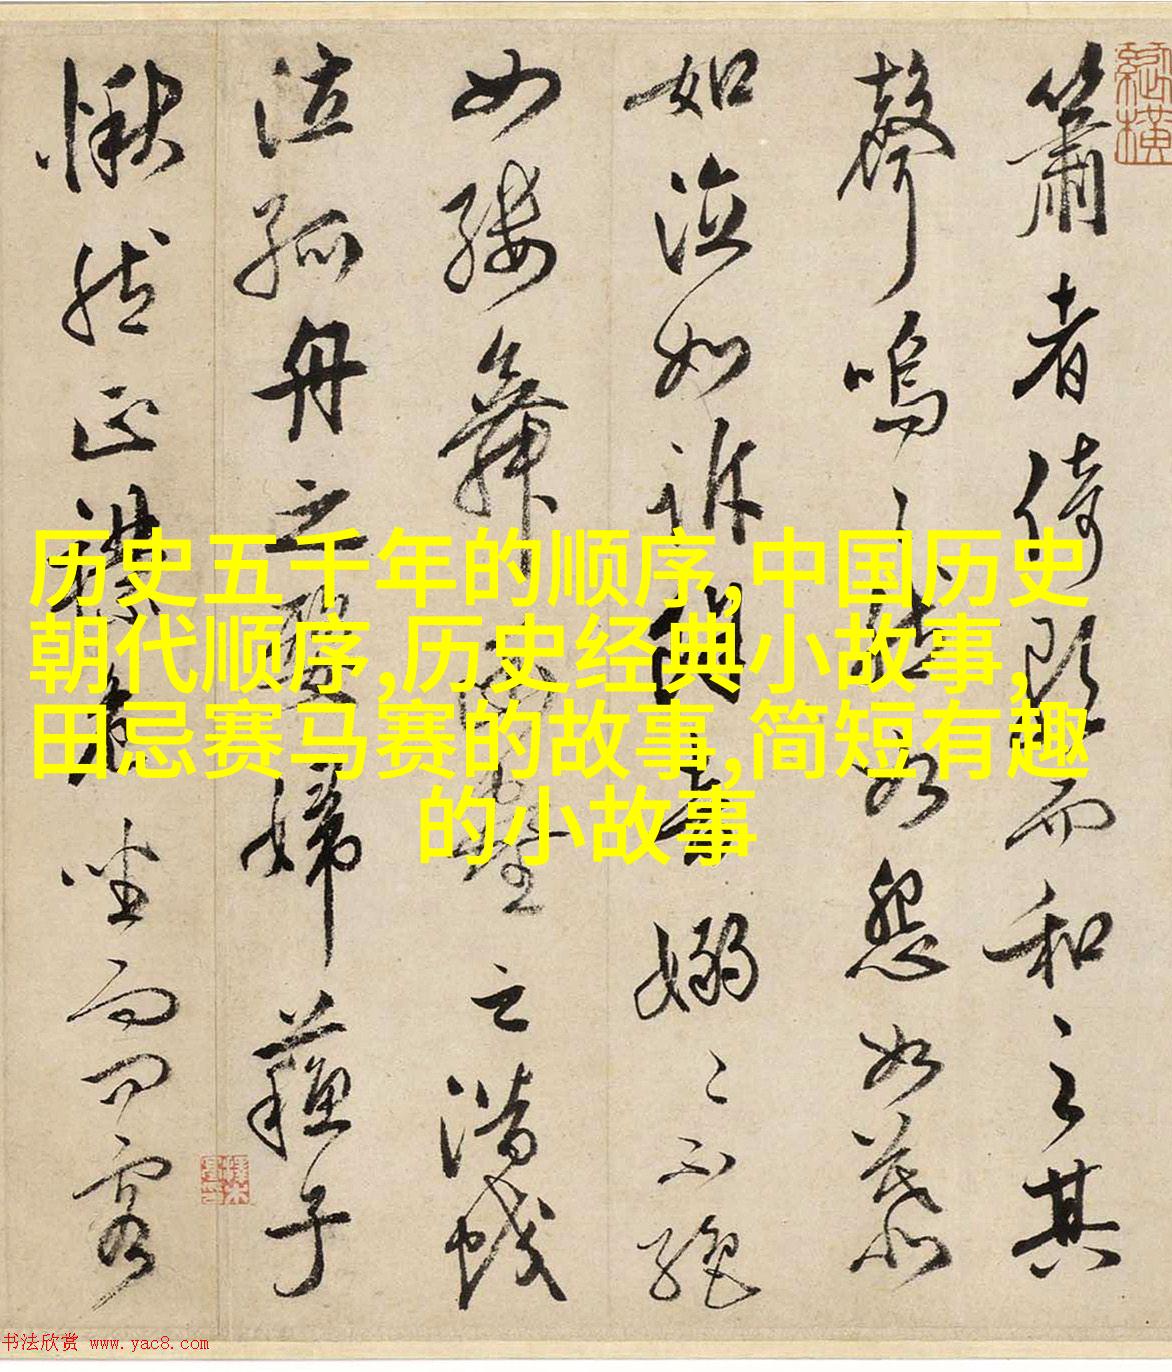 簫者倚歌而和之其
聲嗚〻然如怨如慕
如泣如訴餘音嫋〻不絕
如縷舞幽壑之潛蛟
泣孤舟之嫠婦蘇子
愀然正襟危坐而問客
历史五千年的顺序,中国历史
朝代顺序,历史经典小故事,
田忌赛马赛的故事,简短有趣
的小故事
书法欣赏 www.yac8.com